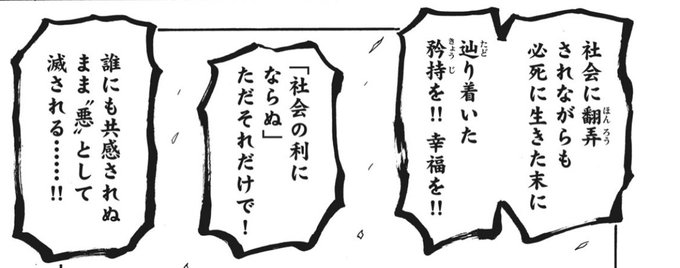 社会に翻弄
されながらも
必死に生きた末に
辿り着いた
矜持を!! 幸福を!!
「社会の利に
ならぬ」
ただそれだけで!
誰にも共感されぬ
まま〝悪〟として
滅される……!!